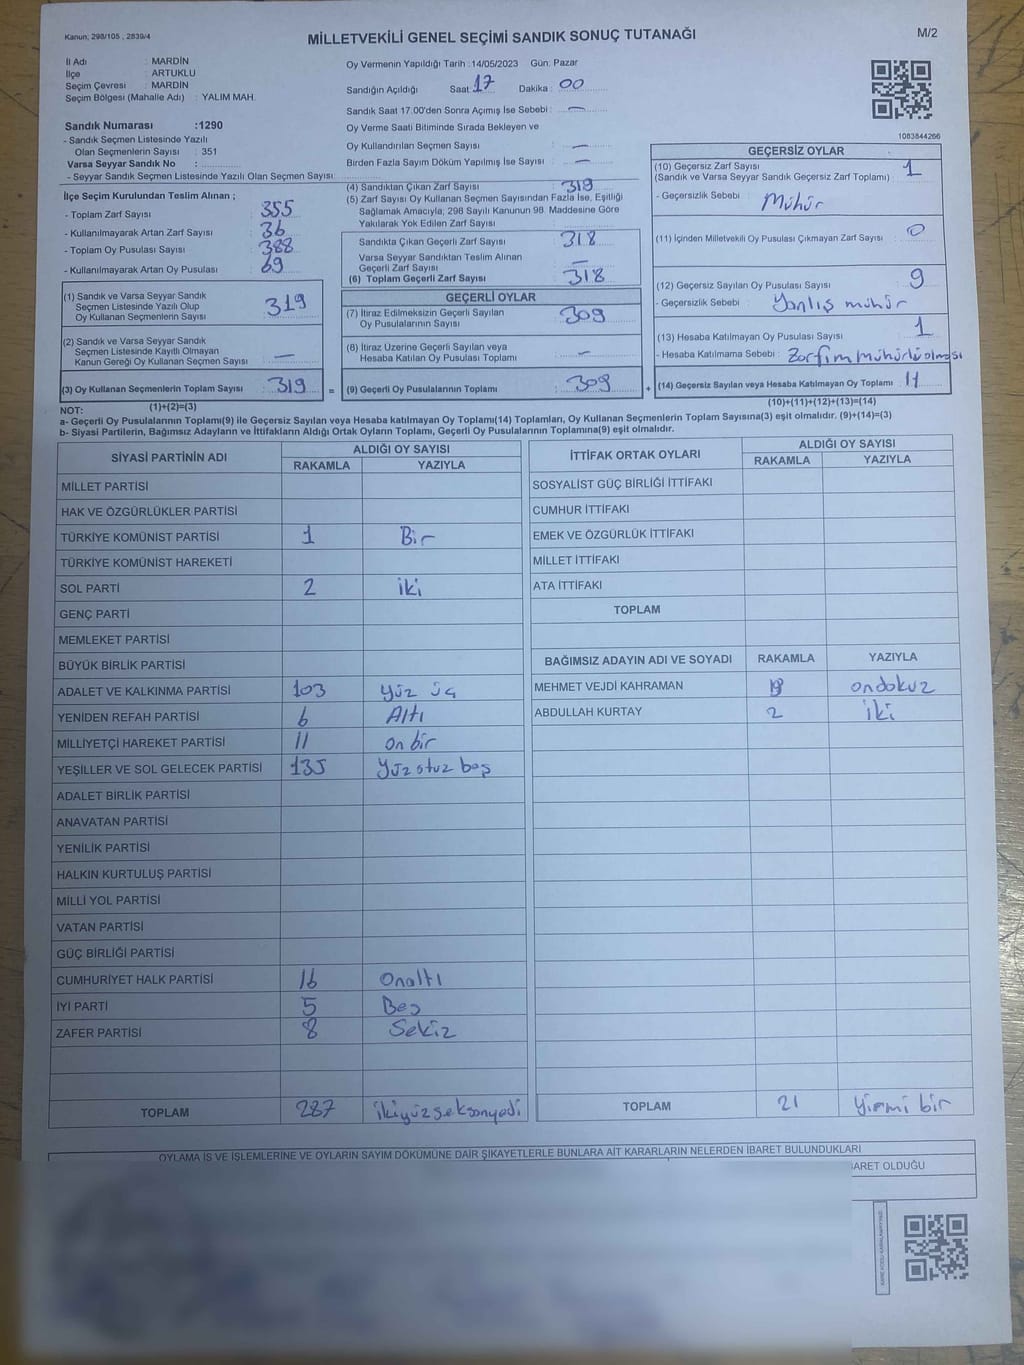 Kanun, 298/105 , 2839/4
MİLLETVEKİLİ GENEL SEÇİMİ SANDIK SONUÇ TUTANAĞI
M/2
İl Adı : MARDİN
İlçe : ARTUKLU
Seçim Çevresi : MARDİN
Seçim Bölgesi (Mahalle Adı) : YALIM MAH.
Sandık Numarası :1290
- Sandık Seçmen Listesinde Yazılı
Olan Seçmenlerin Sayısı : 351
Varsa Seyyar Sandık No :
- Seyyar Sandık Seçmen Listesinde Yazılı Olan Seçmen Sayısı
Oy Vermenin Yapıldığı Tarih :14/05/2023 Gün: Pazar
Sandığın Açıldığı Saat: 17 Dakika : 00
Sandık Saat 17.00'den Sonra Açımış İse Sebebi : —
Oy Verme Saati Bitiminde Sırada Bekleyen ve
Oy Kullandırılan Seçmen Sayısı : —
Birden Fazla Sayım Döküm Yapılmış İse Sayısı : —
1083844266
İlçe Seçim Kurulundan Teslim Alınan ;
- Toplam Zarf Sayısı : 355
- Kullanılmayarak Artan Zarf Sayısı : 36
- Toplam Oy Pusulası Sayısı : 388
- Kullanılmayarak Artan Oy Pusulası : 69
(1) Sandık ve Varsa Seyyar Sandık
Seçmen Listesinde Yazılı Olup
Oy Kullanan Seçmenlerin Sayısı : 319
(2) Sandık ve Varsa Seyyar Sandık
Seçmen Listesinde Kayıtlı Olmayan
Kanun Gereği Oy Kullanan Seçmen Sayısı : —
(3) Oy Kullanan Seçmenlerin Toplam Sayısı : 319 =
(1)+(2)=(3)
(4) Sandıktan Çıkan Zarf Sayısı : 319
(5) Zarf Sayısı Oy Kullanan Seçmen Sayısından Fazla İse, Eşitliği
Sağlamak Amacıyla, 298 Sayılı Kanunun 98. Maddesine Göre
Yakılarak Yok Edilen Zarf Sayısı :
Sandıkta Çıkan Geçerli Zarf Sayısı : 318
Varsa Seyyar Sandıktan Teslim Alınan
Geçerli Zarf Sayısı : —
(6) Toplam Geçerli Zarf Sayısı : 318
GEÇERLİ OYLAR
(7) İtiraz Edilmeksizin Geçerli Sayılan
Oy Pusulalarının Sayısı : 309
(8) İtiraz Üzerine Geçerli Sayılan veya
Hesaba Katılan Oy Pusulası Toplamı : —
(9) Geçerli Oy Pusulalarının Toplamı : 309 +
GEÇERSİZ OYLAR
(10) Geçersiz Zarf Sayısı : 1
(Sandık ve Varsa Seyyar Sandık Geçersiz Zarf Toplamı)
- Geçersizlik Sebebi : Mühür
(11) İçinden Milletvekili Oy Pusulası Çıkmayan Zarf Sayısı : 0
(12) Geçersiz Sayılan Oy Pusulası Sayısı : 9
- Geçersizlik Sebebi : Yanlış mühür
(13) Hesaba Katılmayan Oy Pusulası Sayısı : 1
- Hesaba Katılmama Sebebi : Zarfım mühürlü olması
(14) Geçersiz Sayılan veya Hesaba Katılmayan Oy Toplamı : 11
(10)+(11)+(12)+(13)=(14)
NOT:
a- Geçerli Oy Pusulalarının Toplamı(9) ile Geçersiz Sayılan veya Hesaba katılmayan Oy Toplamı(14) Toplamları, Oy Kullanan Seçmenlerin Toplam Sayısına(3) eşit olmalıdır. (9)+(14)=(3)
b- Siyasi Partilerin, Bağımsız Adayların ve İttifakların Aldığı Ortak Oyların Toplamı, Geçerli Oy Pusulalarının Toplamına(9) eşit olmalıdır.
SİYASİ PARTİNİN ADI ALDIĞI OY SAYISI
RAKAMLA YAZIYLA
MİLLET PARTİSİ
HAK VE ÖZGÜRLÜKLER PARTİSİ
TÜRKİYE KOMÜNİST PARTİSİ 1 Bir
TÜRKİYE KOMÜNİST HAREKETİ
SOL PARTİ 2 iki
GENÇ PARTİ
MEMLEKET PARTİSİ
BÜYÜK BİRLİK PARTİSİ
ADALET VE KALKINMA PARTİSİ 103 yüz üç
YENİDEN REFAH PARTİSİ 6 Altı
MİLLİYETÇİ HAREKET PARTİSİ 11 on bir
YEŞİLLER VE SOL GELECEK PARTİSİ 135 yüz otuz beş
ADALET BİRLİK PARTİSİ
ANAVATAN PARTİSİ
YENİLİK PARTİSİ
HALKIN KURTULUŞ PARTİSİ
MİLLİ YOL PARTİSİ
VATAN PARTİSİ
GÜÇ BİRLİĞİ PARTİSİ
CUMHURİYET HALK PARTİSİ 16 Onaltı
İYİ PARTİ 5 Beş
ZAFER PARTİSİ 8 Sekiz
TOPLAM 287 ikiyüzseksenyedi
İTTİFAK ORTAK OYLARI ALDIĞI OY SAYISI
RAKAMLA YAZIYLA
SOSYALİST GÜÇ BİRLİĞİ İTTİFAKI
CUMHUR İTTİFAKI
EMEK VE ÖZGÜRLÜK İTTİFAKI
MİLLET İTTİFAKI
ATA İTTİFAKI
TOPLAM
BAĞIMSIZ ADAYIN ADI VE SOYADI RAKAMLA YAZIYLA
MEHMET VEJDİ KAHRAMAN 19 ondokuz
ABDULLAH KURTAY 2 iki
TOPLAM 21 yirmi bir
OYLAMA İŞ VE İŞLEMLERİNE VE OYLARIN SAYIM DÖKÜMÜNE DAİR ŞİKAYETLERLE BUNLARA AİT KARARLARIN NELERDEN İBARET BULUNDUKLARI
BARET OLDUĞU